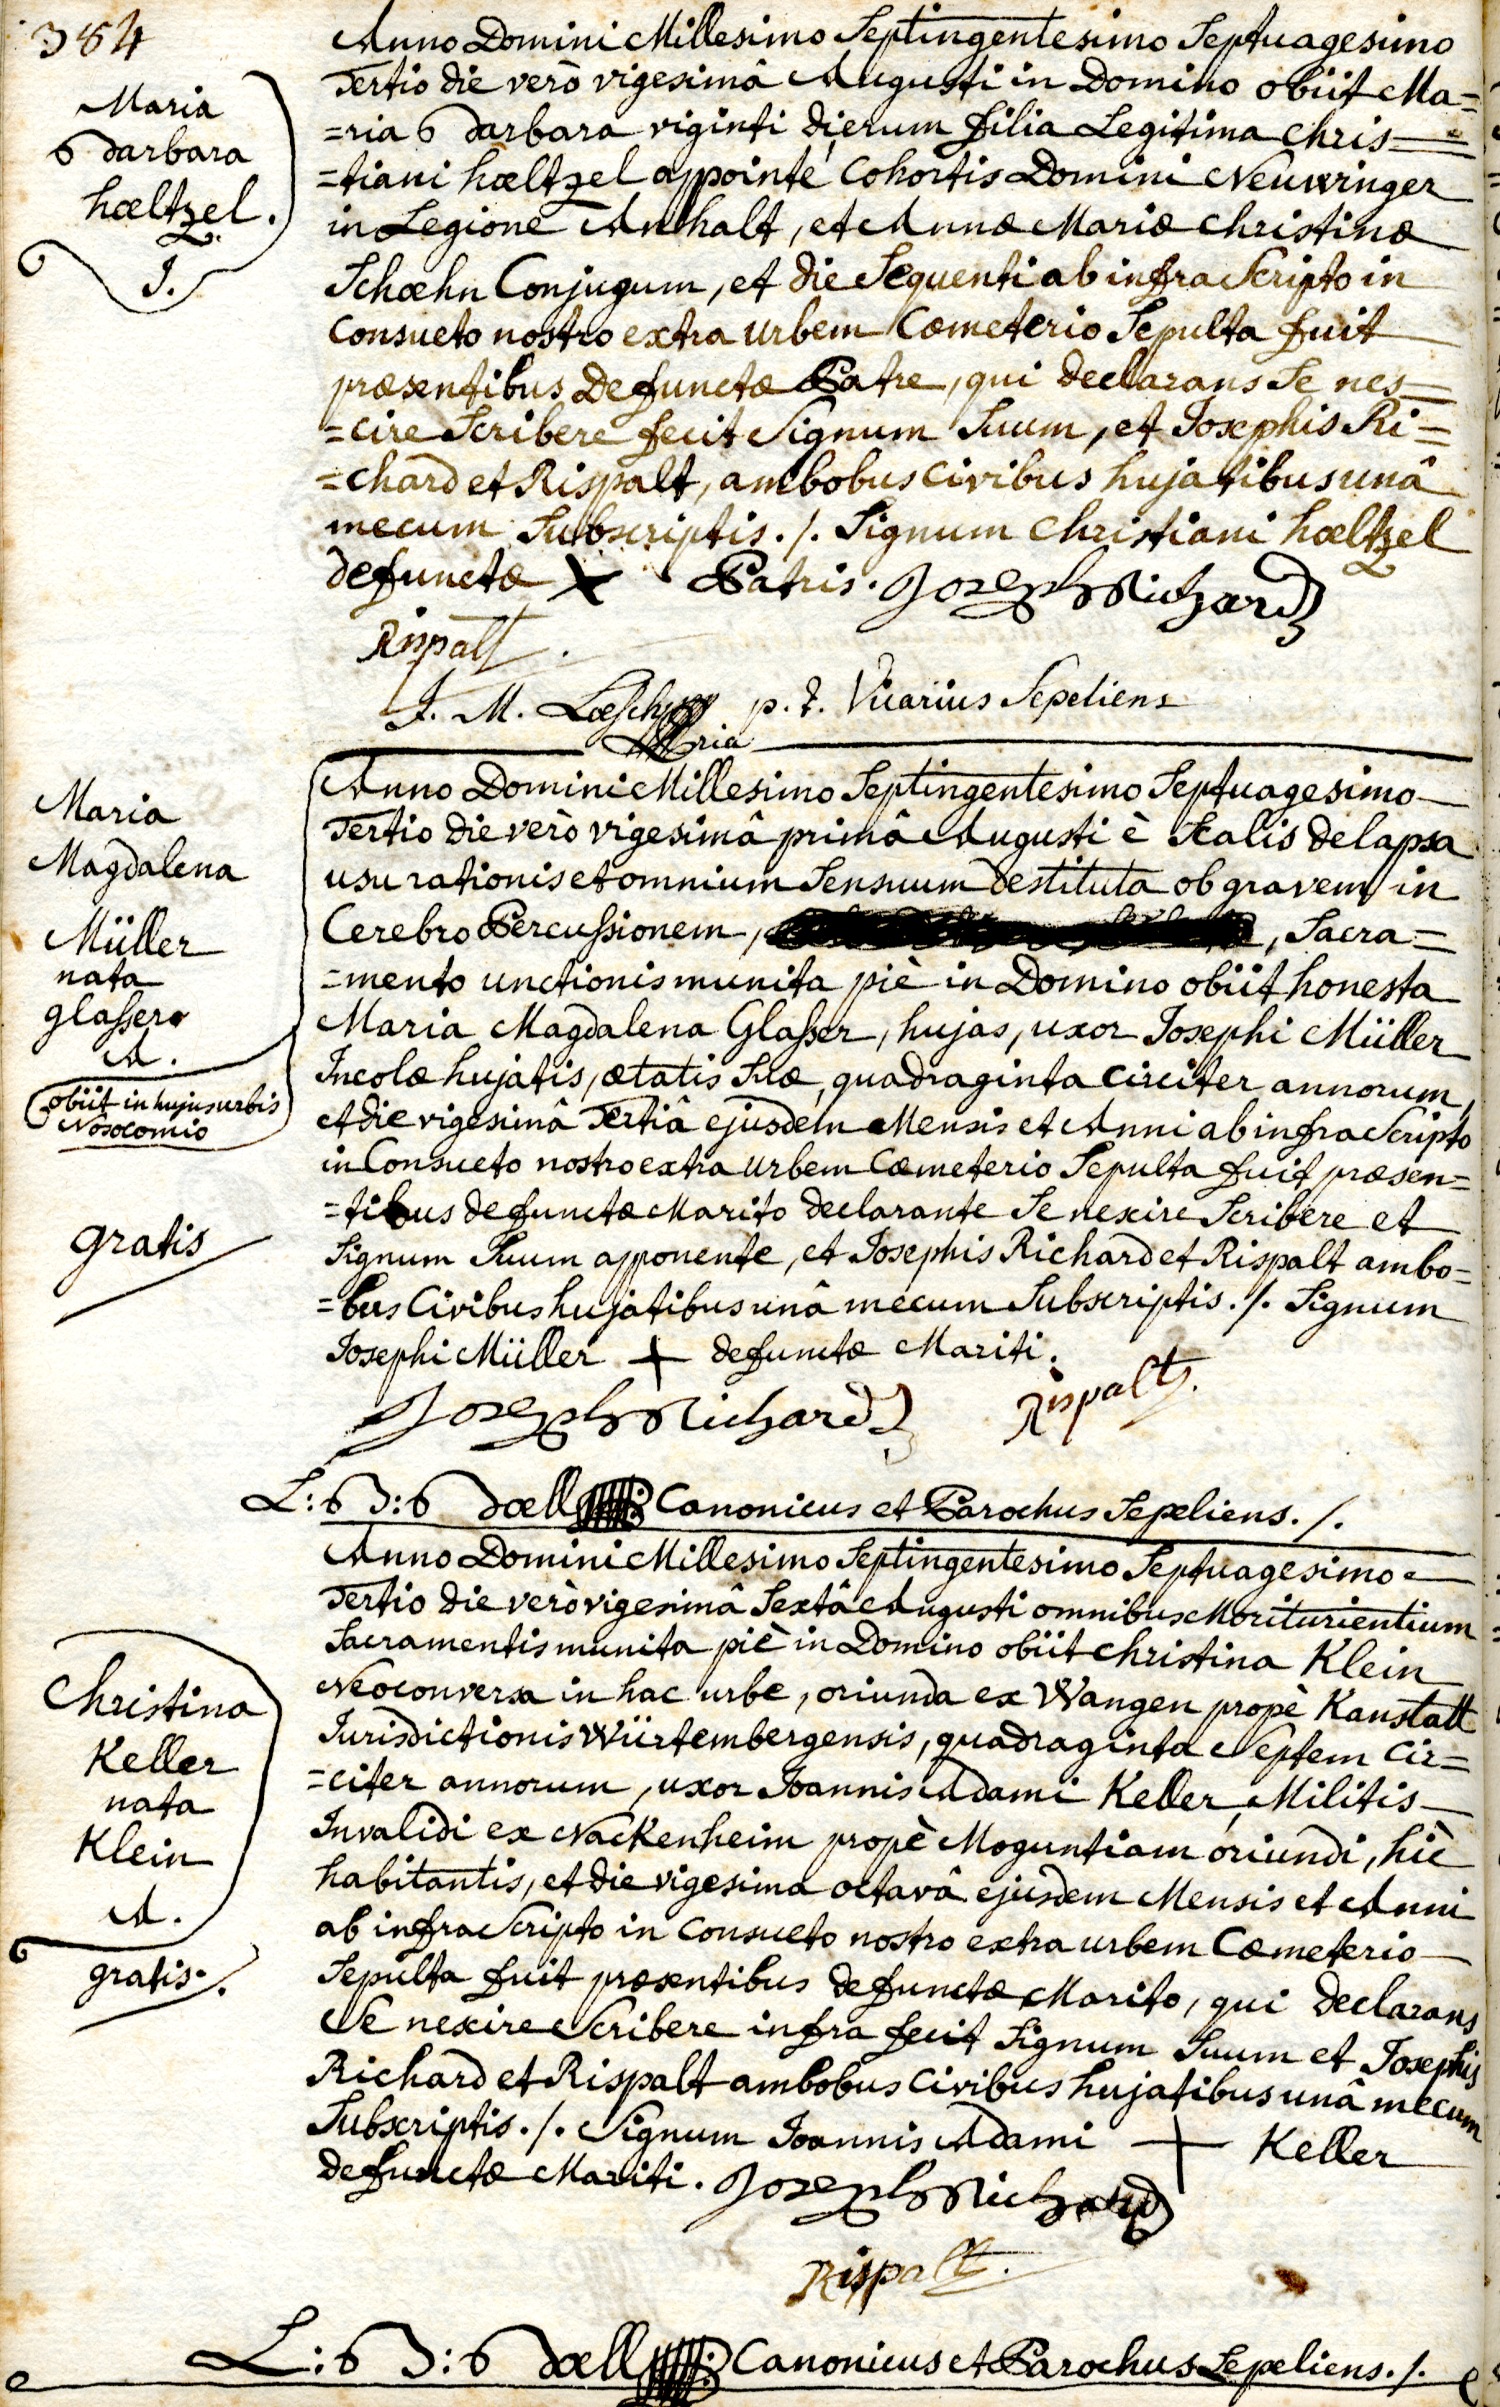 384
Maria
Barbara
hœltzel.
J.
Anno Domini Millesimo Septingentesimo Septuagesimo
Tertio die verò vigesimâ Augusti in Domino obiit Ma=
=ria Barbara viginti dierum filia Legitima Chris=
=tiani hœltzel appointé Cohortis Domini Neuwinger
in Legione Anhalt, et Annæ Mariæ Christinæ
Schœhn Conjugum, et die Sequenti ab infra Scripto in
Consueto nostro extra Urbem Cœmeterio Sepulta fuit
præsentibus Defunctæ Patre, qui declarans Se nes=
=cire Scribere fecit Signum Suum, et Josephis Ri=
=chard et Rispalt, ambobus Civibus hujatibus unâ
mecum Subscriptis ./. Signum Christiani hœltzel
defunctæ X Patris. Joseph Richard
Rispalt.
J. M. p. t. Vicarius Sepeliens
ria
Maria
Magdalena
Müller
nata
glaßer
A.
obiit in hujus urbis
Nosocomio
gratis
Anno Domini Millesimo Septingentesimo Septuagesimo
Tertio die verò vigesimâ primâ Augusti è Scalis delapsa
usu rationis et omnium Sensuum destituta ob gravem in
Cerebro Percußionem, , Sacra=
=mento unctionis munita piè in Domino obiit honesta
Maria Magdalena Glaßer, hujas, uxor Josephi Müller
Incolæ hujatis, ætatis Suæ, quadraginta circiter annorum,
et die vigesimâ Tertiâ ejusdem Mensis et Anni ab infra Scripto
in Consueto nostro extra Urbem Cœmeterio Sepulta fuit præsen=
=tibus defunctæ Marito declarante Se nescire Scribere et
Signum Suum apponente, et Josephis Richard et Rispalt ambo=
=bus Civibus hujatibus unâ mecum Subscriptis ./. Signum
Josephi Müller + defunctæ Mariti.
Joseph Richard Rispalt.
L: B: Bœll Canonicus et Parochus Sepeliens ./.
Christina
Keller
nata
Klein
A.
gratis ./.
Anno Domini Millesimo Septingentesimo Septuagesimo
Tertio die verò vigesimâ Sextâ Augusti omnibus Moriturientium
Sacramentis munita piè in Domino obiit Christina Klein
Neoconversa in hac urbe, oriunda ex Wangen propè Kanstatt
Jurisdictionis Würtembergensis, quadraginta Septem Cir=
=citer annorum, uxor Joannis Adami Keller, Militis
Invalidi ex Nackenheim propè Moguntiam oriundi, hic
habitantis, et die vigesima octavâ ejusdem Mensis et Anni
ab infra Scripto in Consueto nostro extra urbem Cœmeterio
Sepulta fuit præsentibus defunctæ Marito, qui declarans
Se nescire Scribere infra fecit Signum Suum et Josephis
Richard et Rispalt ambobus Civibus hujatibus unâ mecum
Subscriptis ./. Signum Joannis Adami + Keller
defunctæ Mariti. Joseph Richard
Rispalt.
L: B: Bœll Canonicus et Parochus Sepeliens ./.